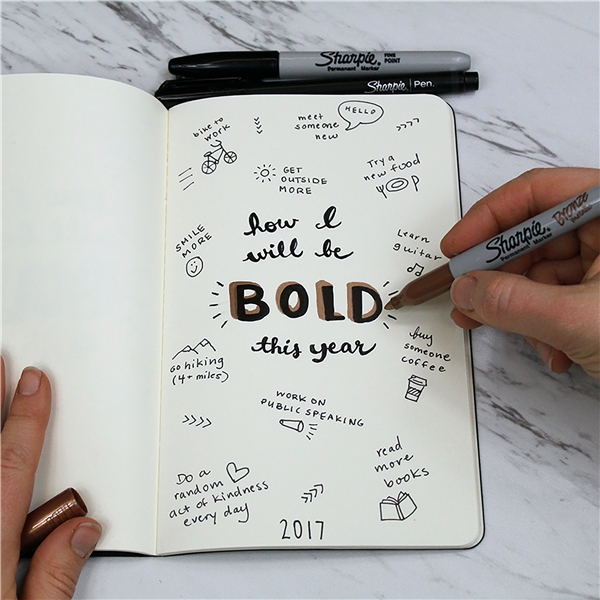 Sharpie® FINE POINT
Permanent Marker
Sharpie® Pen.
bike to
work
meet
someone
new
HELLO
GET
OUTSIDE
MORE
Try a
new food
SMILE
MORE
how I
will be
BOLD
this year
Learn
guitar
Sharpie®
Permanent Marker
Bronze
go hiking
(4+ miles)
buy
someone
coffee
WORK ON
PUBLIC SPEAKING
read
more
books
Do a
random
act of kindness
every day
2017